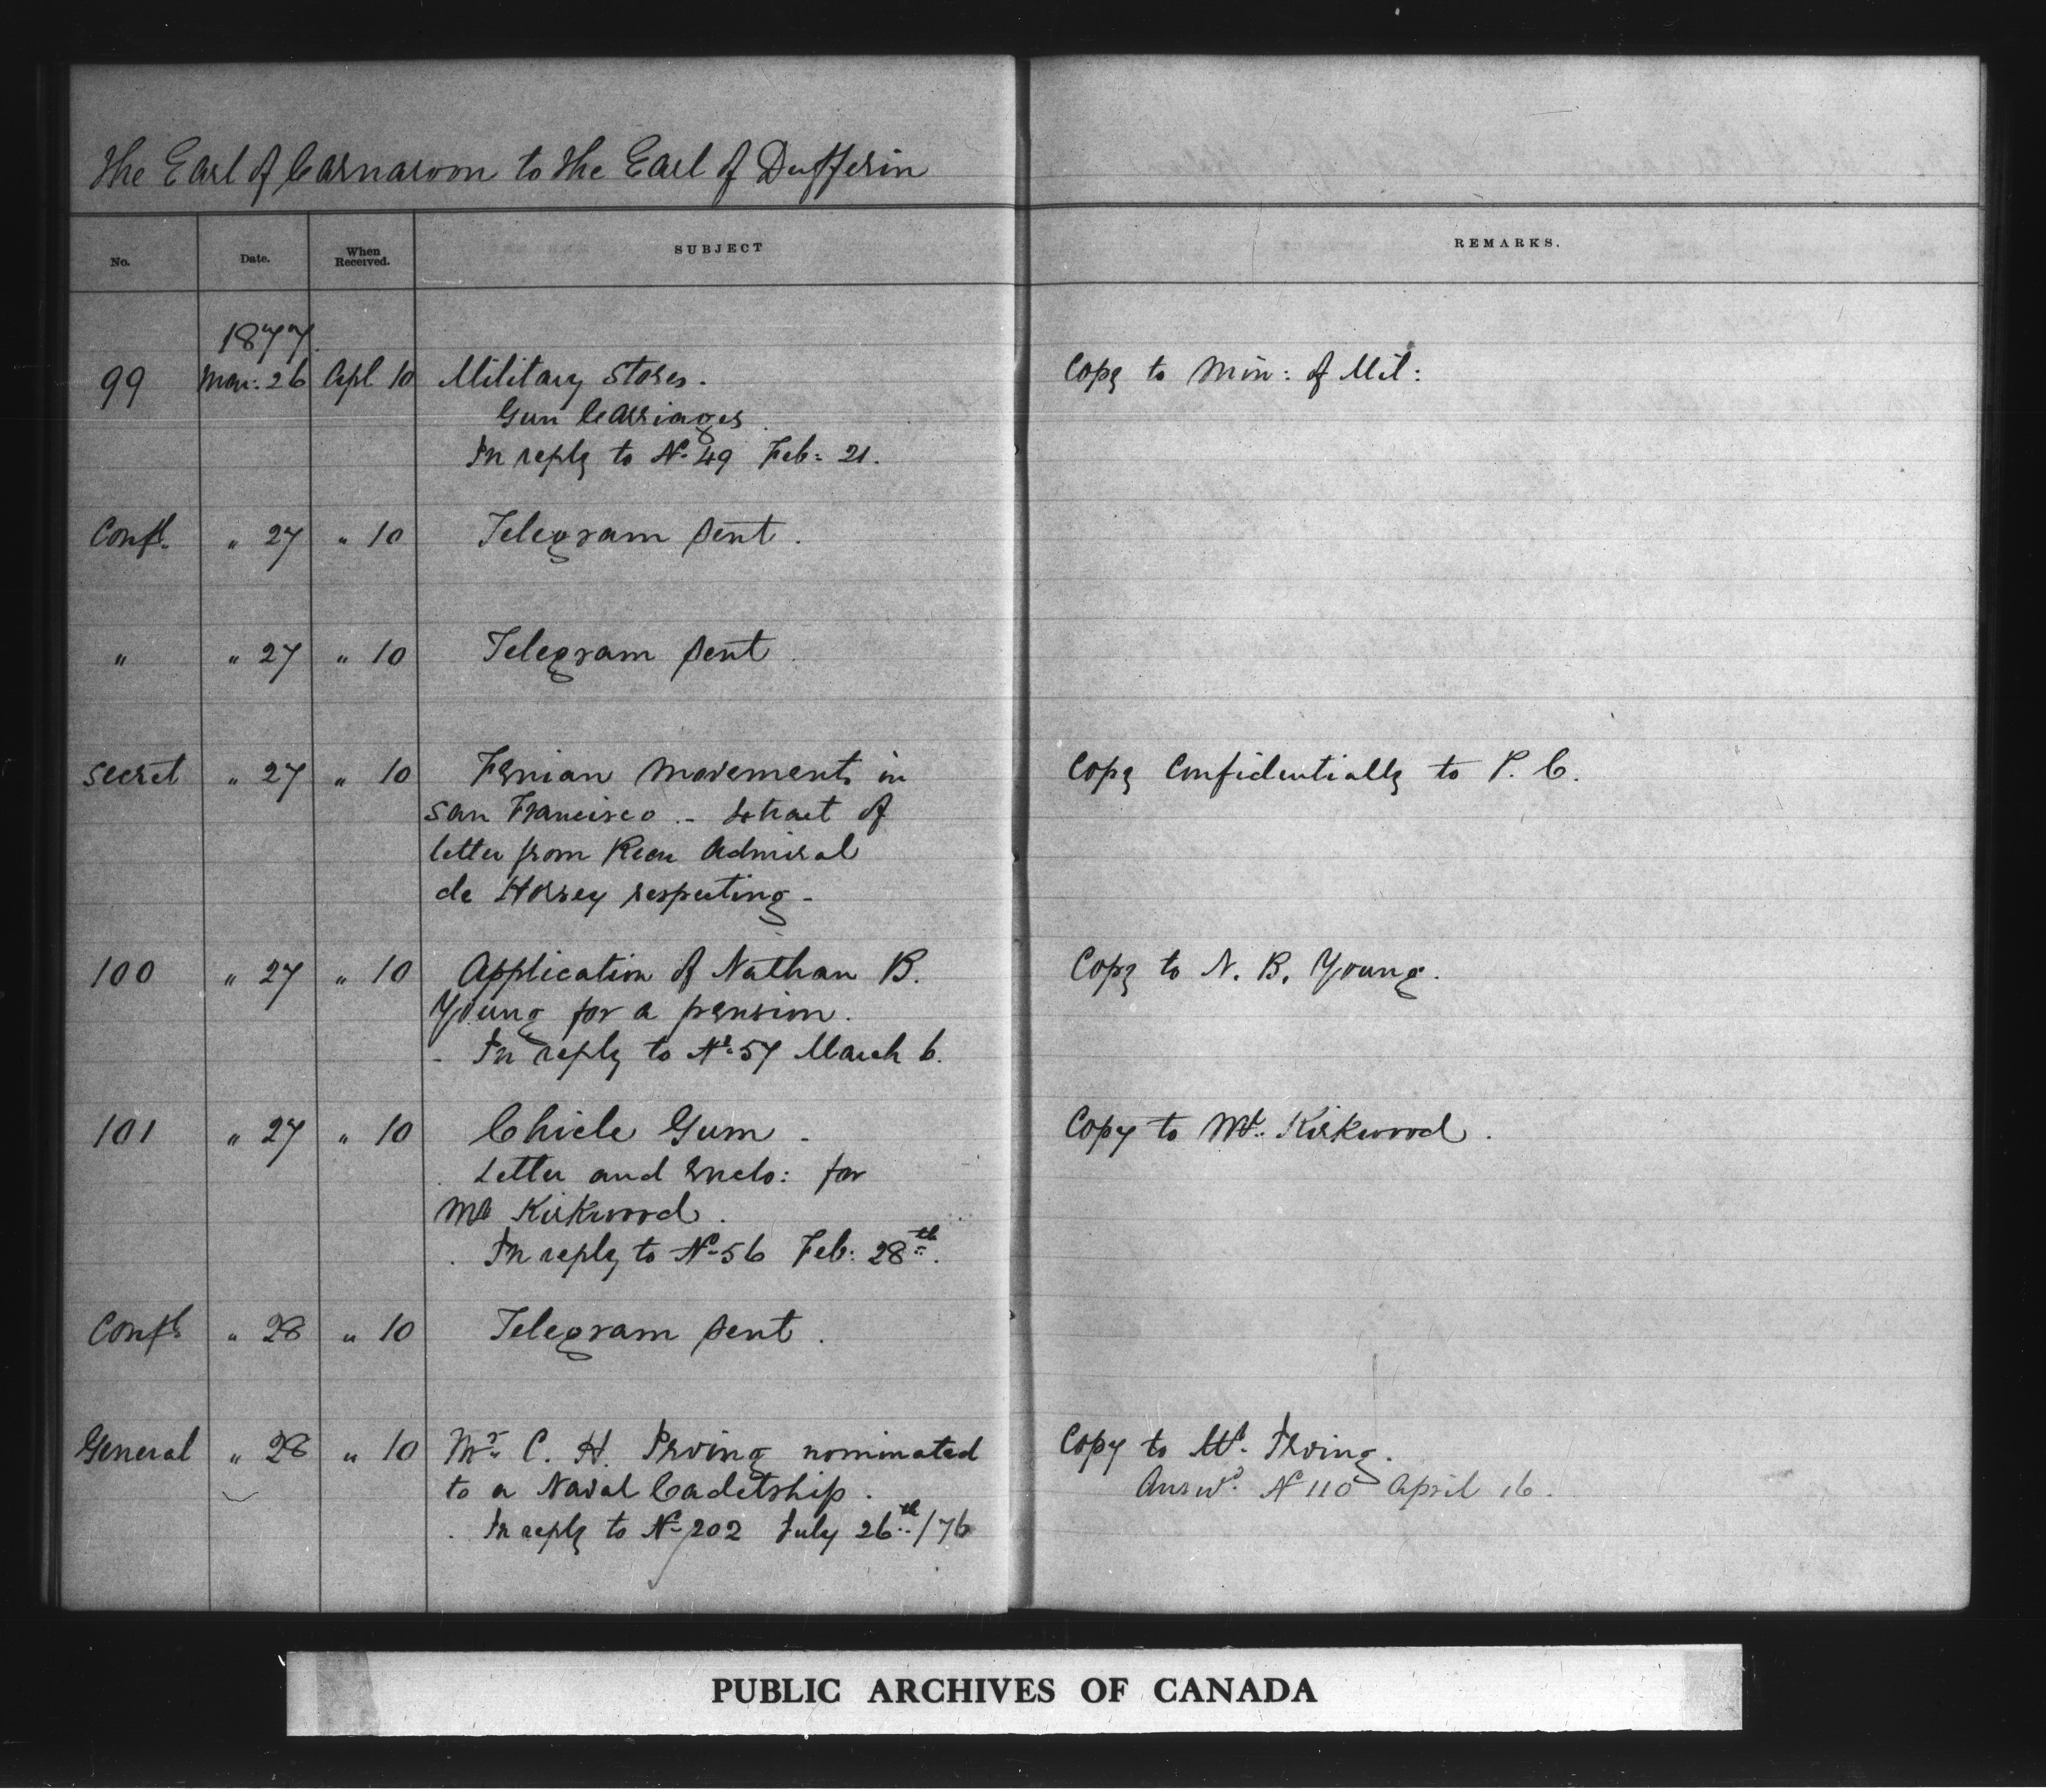 The Earl of Carnarvon to the Earl of Dufferin
No. Date. When Received. SUBJECT REMARKS.
1877.
99 Mar: 26 Apl 10 Military Stores. Copy to Min: of Mil:
Gun Carriages.
In reply to No. 49 Feb: 21.
Confl. " 27 " 10 Telegram sent.
" " 27 " 10 Telegram sent.
Secret " 27 " 10 Fenian movements in Copy Confidentially to P. C.
San Francisco - Extract of
letter from Rear Admiral
de Horsey respecting -
100 " 27 " 10 Application of Nathan B. Copy to N. B. Young.
Young for a pension.
- In reply to No. 57 March 6.
101 " 27 " 10 Chicle Gum. Copy to Mr. Kirkwood.
Letter and Enclo: for
Mr Kirkwood.
In reply to No. 56 Feb: 28th.
Confl. " 28 " 10 Telegram sent.
General " 28 " 10 Mr. C. H. Irving nominated Copy to Mr. Irving.
to a Naval Cadetship. Answd. No 110 April 16.
In reply to No. 202 July 26th/76
PUBLIC ARCHIVES OF CANADA